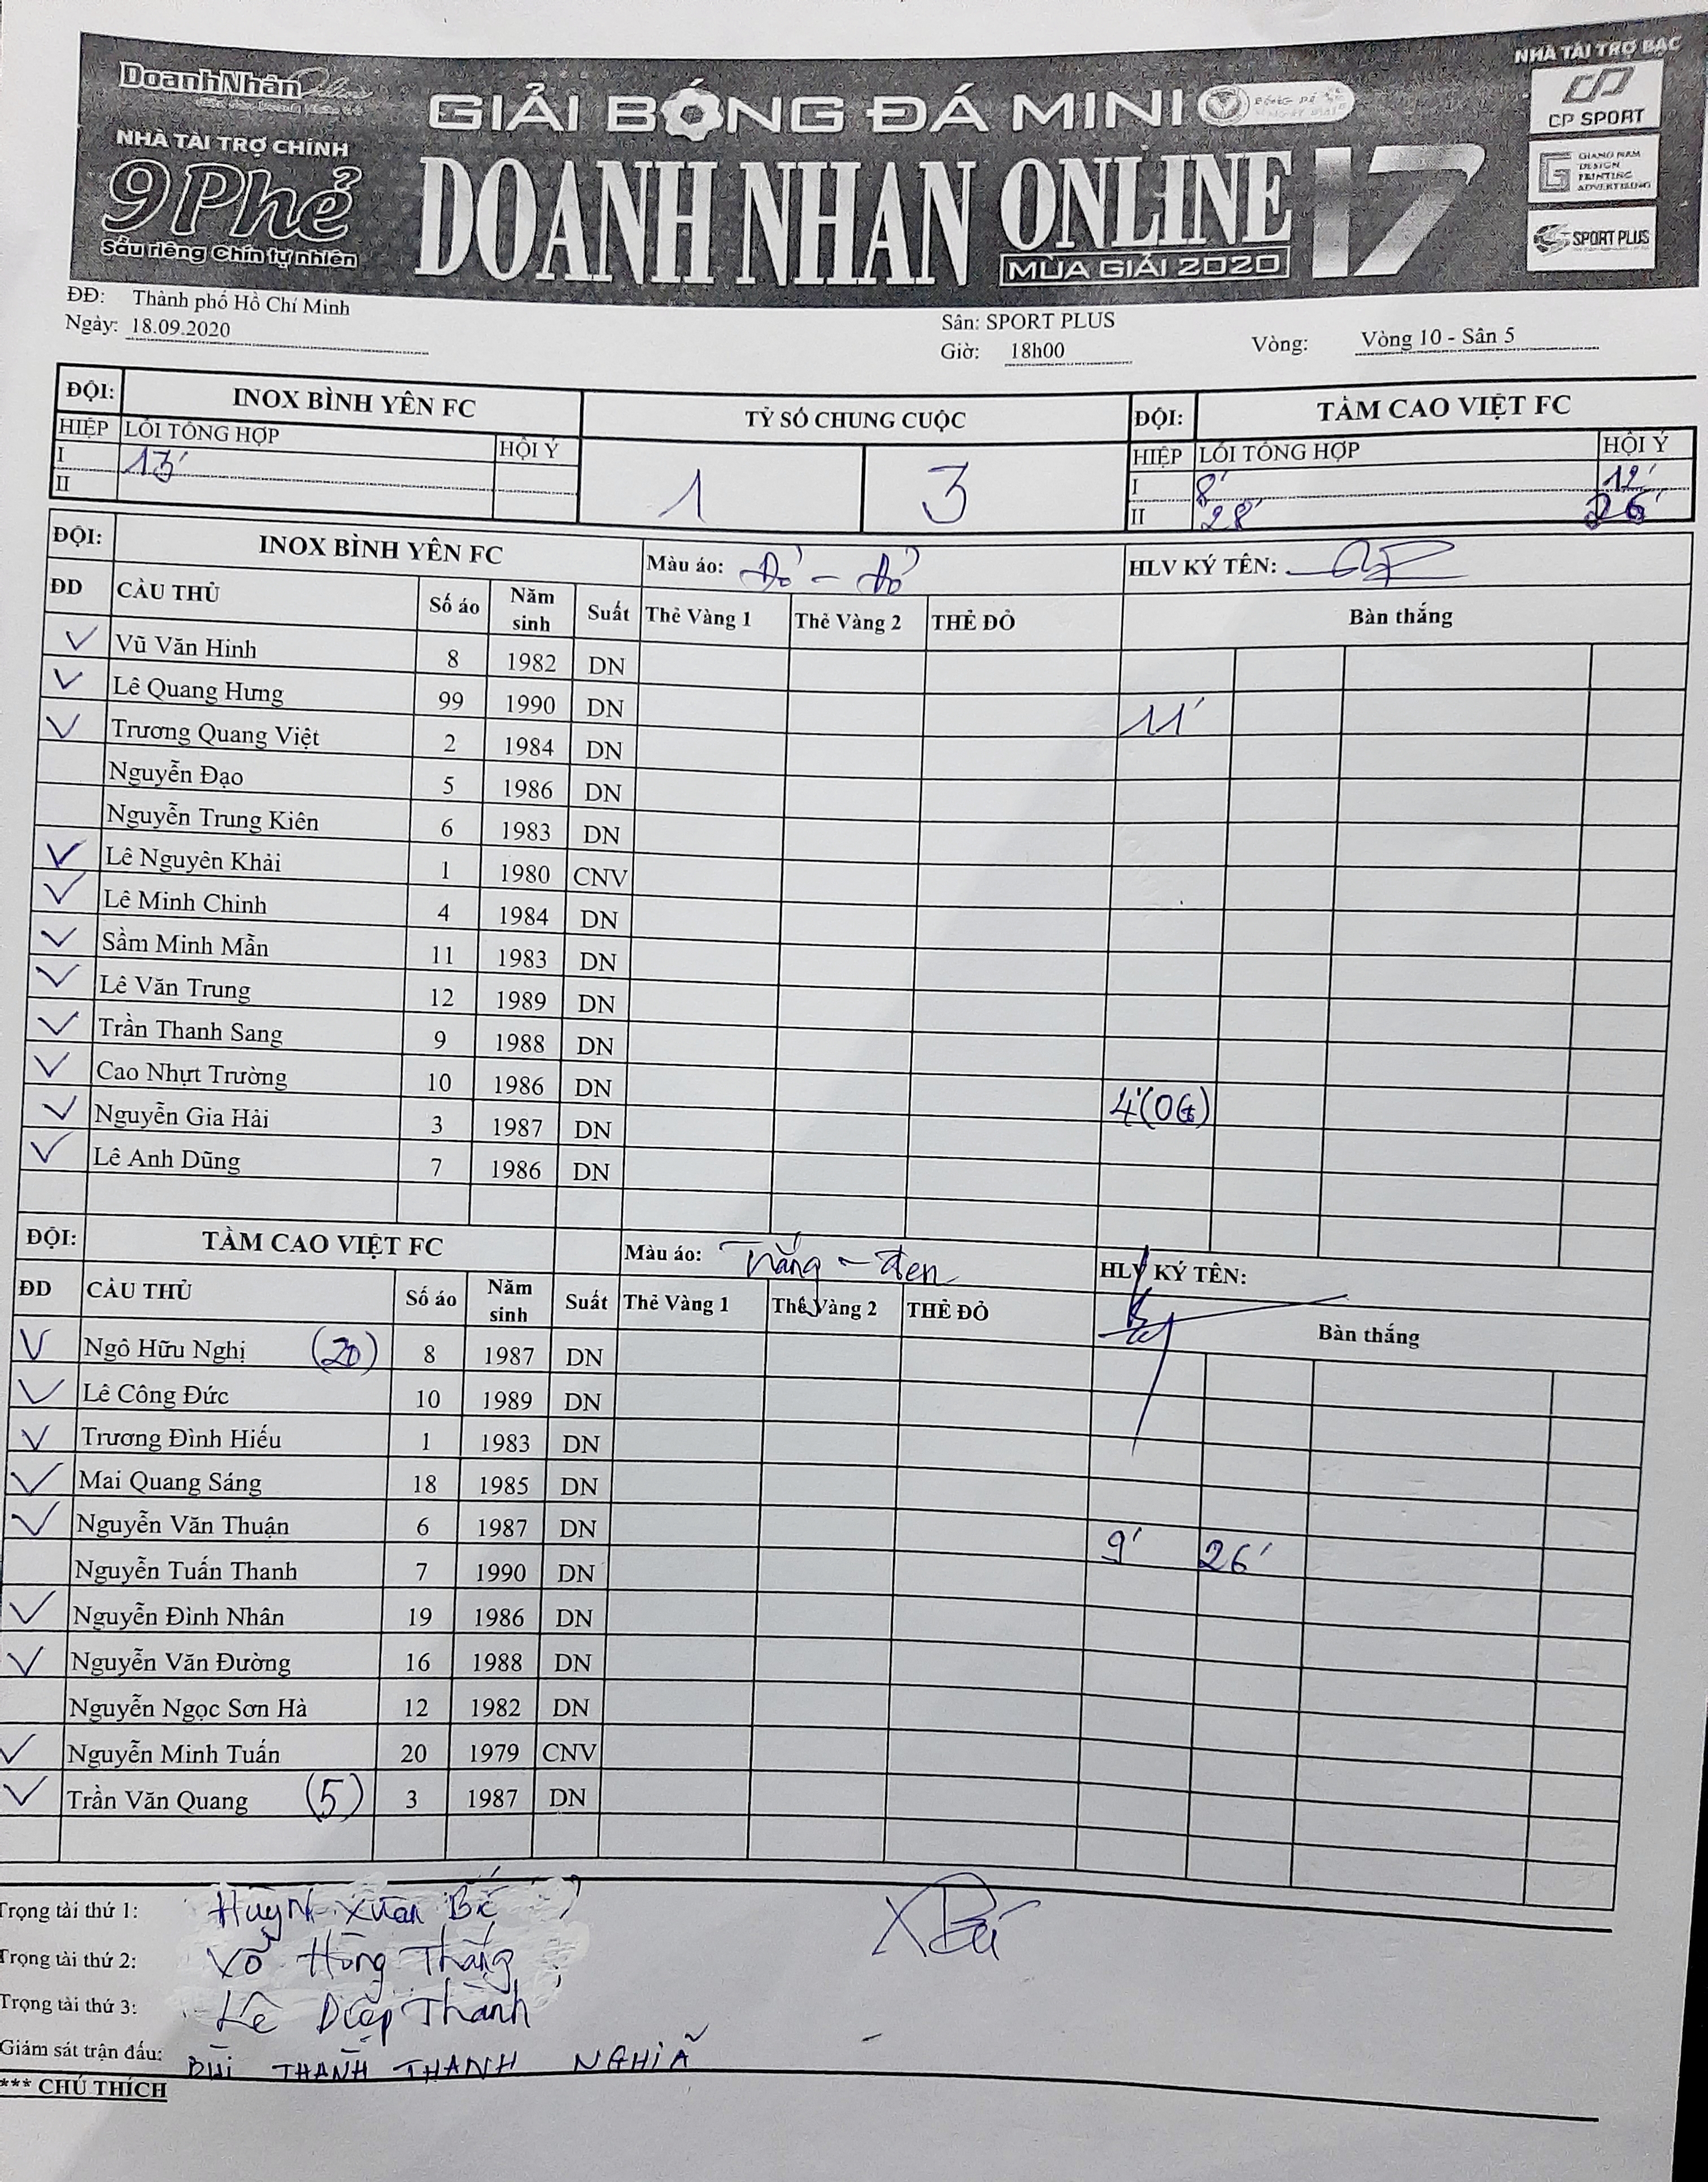 DoanhNhân
NHÀ TÀI TRỢ CHÍNH
9 Phẻ
Sầu riêng Chín tự nhiên
GIẢI BÓNG ĐÁ MINI
DOANH NHAN ONLINE 17
MÙA GIẢI 2020
NHÀ TÀI TRỢ BẠC
CP SPORT
GIANG NAM
DESIGN
PRINTING
ADVERTISING
SPORT PLUS
ĐĐ: Thành phố Hồ Chí Minh
Ngày: 18.09.2020
Sân: SPORT PLUS
Giờ: 18h00
Vòng: Vòng 10 - Sân 5
ĐỘI: INOX BÌNH YÊN FC TỶ SỐ CHUNG CUỘC ĐỘI: TẦM CAO VIỆT FC
HIỆP LỖI TỔNG HỢP HỘI Ý 1 3 HIỆP LỖI TỔNG HỢP HỘI Ý
I 13' I 8' 12'
II II 28' 26'
ĐỘI: INOX BÌNH YÊN FC Màu áo: Đỏ - Đỏ HLV KÝ TÊN:
ĐD CẦU THỦ Số áo Năm sinh Suất Thẻ Vàng 1 Thẻ Vàng 2 THẺ ĐỎ Bàn thắng
V Vũ Văn Hinh 8 1982 DN
V Lê Quang Hưng 99 1990 DN 11'
V Trương Quang Việt 2 1984 DN
Nguyễn Đạo 5 1986 DN
Nguyễn Trung Kiên 6 1983 DN
V Lê Nguyên Khải 1 1980 CNV
V Lê Minh Chinh 4 1984 DN
V Sầm Minh Mẫn 11 1983 DN
V Lê Văn Trung 12 1989 DN
V Trần Thanh Sang 9 1988 DN
V Cao Nhựt Trường 10 1986 DN
V Nguyễn Gia Hải 3 1987 DN 4'(OG)
V Lê Anh Dũng 7 1986 DN
ĐỘI: TẦM CAO VIỆT FC Màu áo: Trắng - đen HLV KÝ TÊN:
ĐD CẦU THỦ Số áo Năm sinh Suất Thẻ Vàng 1 Thẻ Vàng 2 THẺ ĐỎ Bàn thắng
V Ngô Hữu Nghị (20) 8 1987 DN
V Lê Công Đức 10 1989 DN
V Trương Đình Hiếu 1 1983 DN
V Mai Quang Sáng 18 1985 DN
V Nguyễn Văn Thuận 6 1987 DN 9' 26'
Nguyễn Tuấn Thanh 7 1990 DN
V Nguyễn Đình Nhân 19 1986 DN
V Nguyễn Văn Đường 16 1988 DN
Nguyễn Ngọc Sơn Hà 12 1982 DN
V Nguyễn Minh Tuấn 20 1979 CNV
V Trần Văn Quang (5) 3 1987 DN
Trọng tài thứ 1: Huỳnh Xuân
Trọng tài thứ 2: Võ Hồng Thắng
Trọng tài thứ 3: Lê Diệp Thành
Giám sát trận đấu: BÙI THANH THANH NGHIÃ
*** CHÚ THÍCH